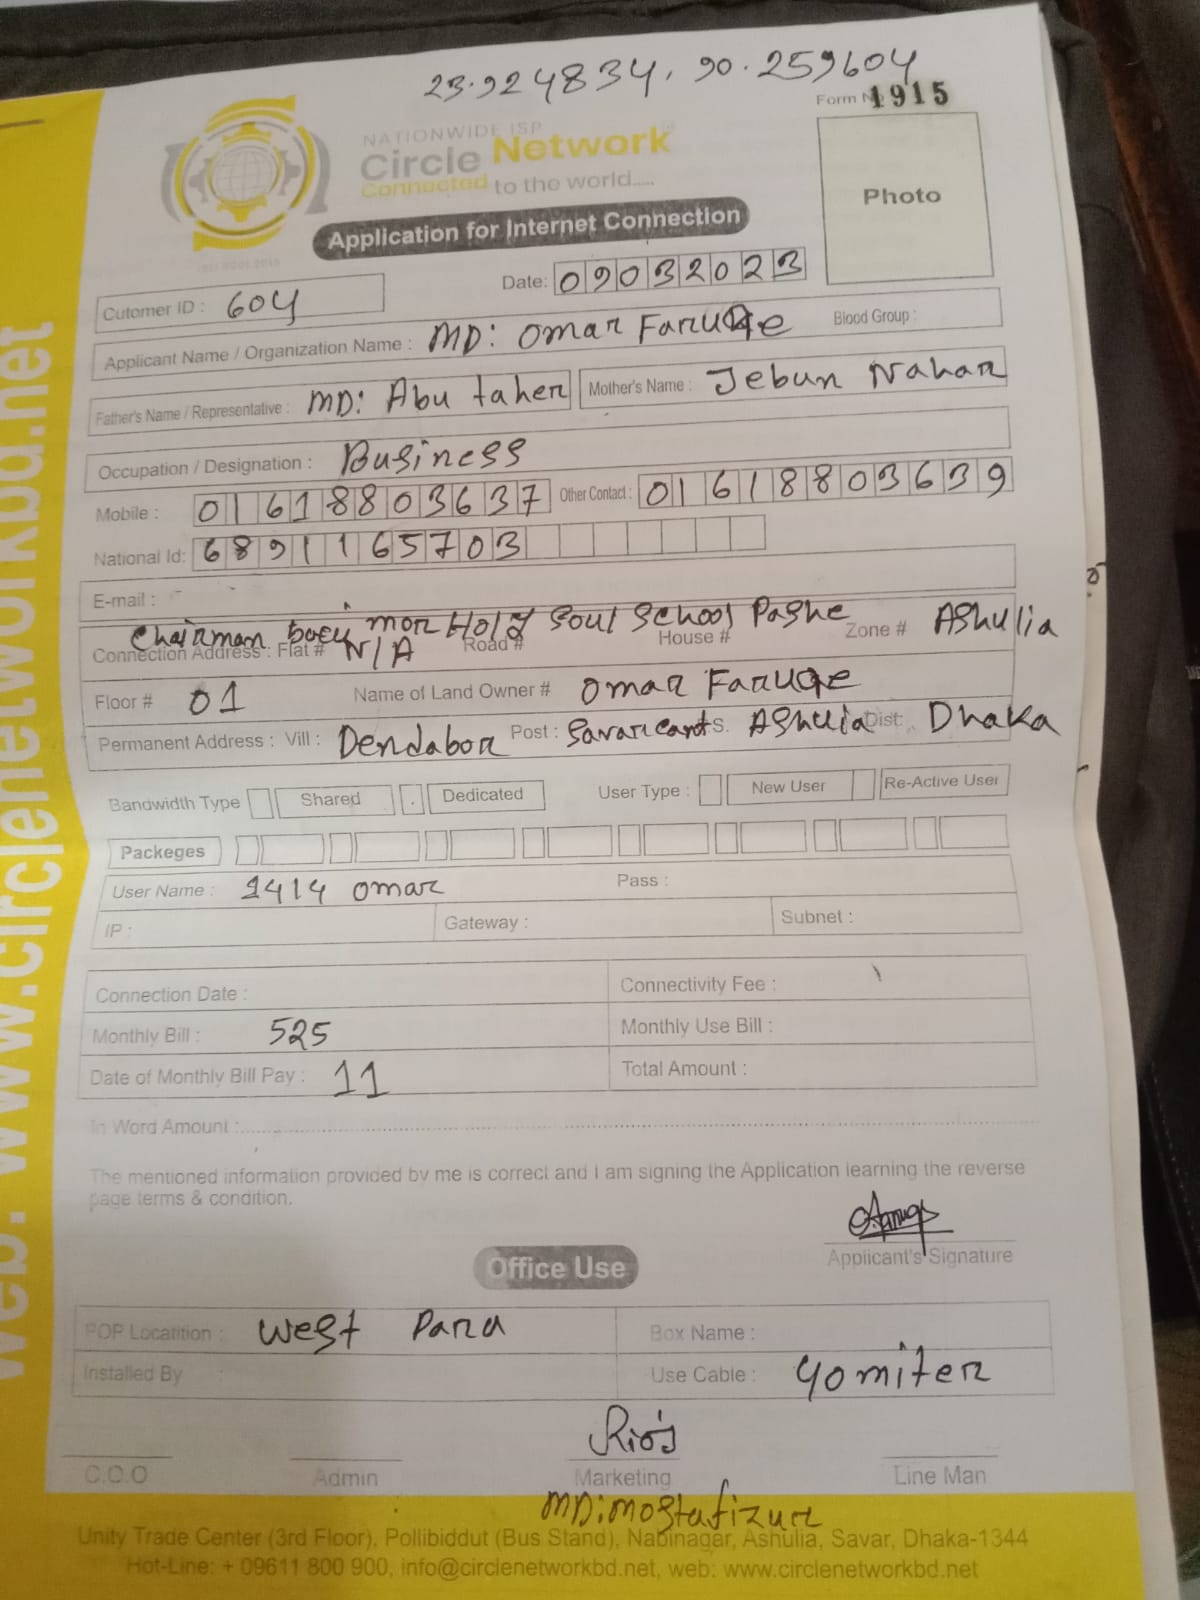 23.924834, 90.259604
Form No 1915
NATIONWIDE ISP
Circle Network
Connected to the world....
Photo
Application for Internet Connection
Date: 09032023
Cutomer ID : 604
Applicant Name / Organization Name : MD: Omar Faruqe Blood Group :
Father's Name / Representative : MD: Abu taher Mother's Name : Jebun Nahar
Occupation / Designation : Business
Mobile : 01618803637 Other Contact : 01618803639
National Id: 6891165703
E-mail :
Chairman bari mor Holy Soul School Pashe
Connection Address : Flat # N/A Road # House # Zone # Ashulia
Floor # 01 Name of Land Owner # Omar Faruqe
Permanent Address : Vill : Dendabor Post : Savarcant P.S. Ashulia Dist: Dhaka
Bandwidth Type Shared Dedicated User Type : New User Re-Active User
Packeges
User Name : 1414 omar Pass :
IP : Gateway : Subnet :
Connection Date : Connectivity Fee :
Monthly Bill : 525 Monthly Use Bill :
Date of Monthly Bill Pay : 11 Total Amount :
In Word Amount :
The mentioned information provided by me is correct and I am signing the Application learning the reverse
page terms & condition.
Applicant's Signature
Office Use
POP Locatition : West Para Box Name :
Installed By : Use Cable : 40 miter
C.O.O Admin Marketing Line Man
MD: mostafizur
Unity Trade Center (3rd Floor), Pollibiddut (Bus Stand), Nabinagar, Ashulia, Savar, Dhaka-1344
Hot-Line: + 09611 800 900, info@circlenetworkbd.net, web: www.circlenetworkbd.net
web: www.circlenetworkbd.net